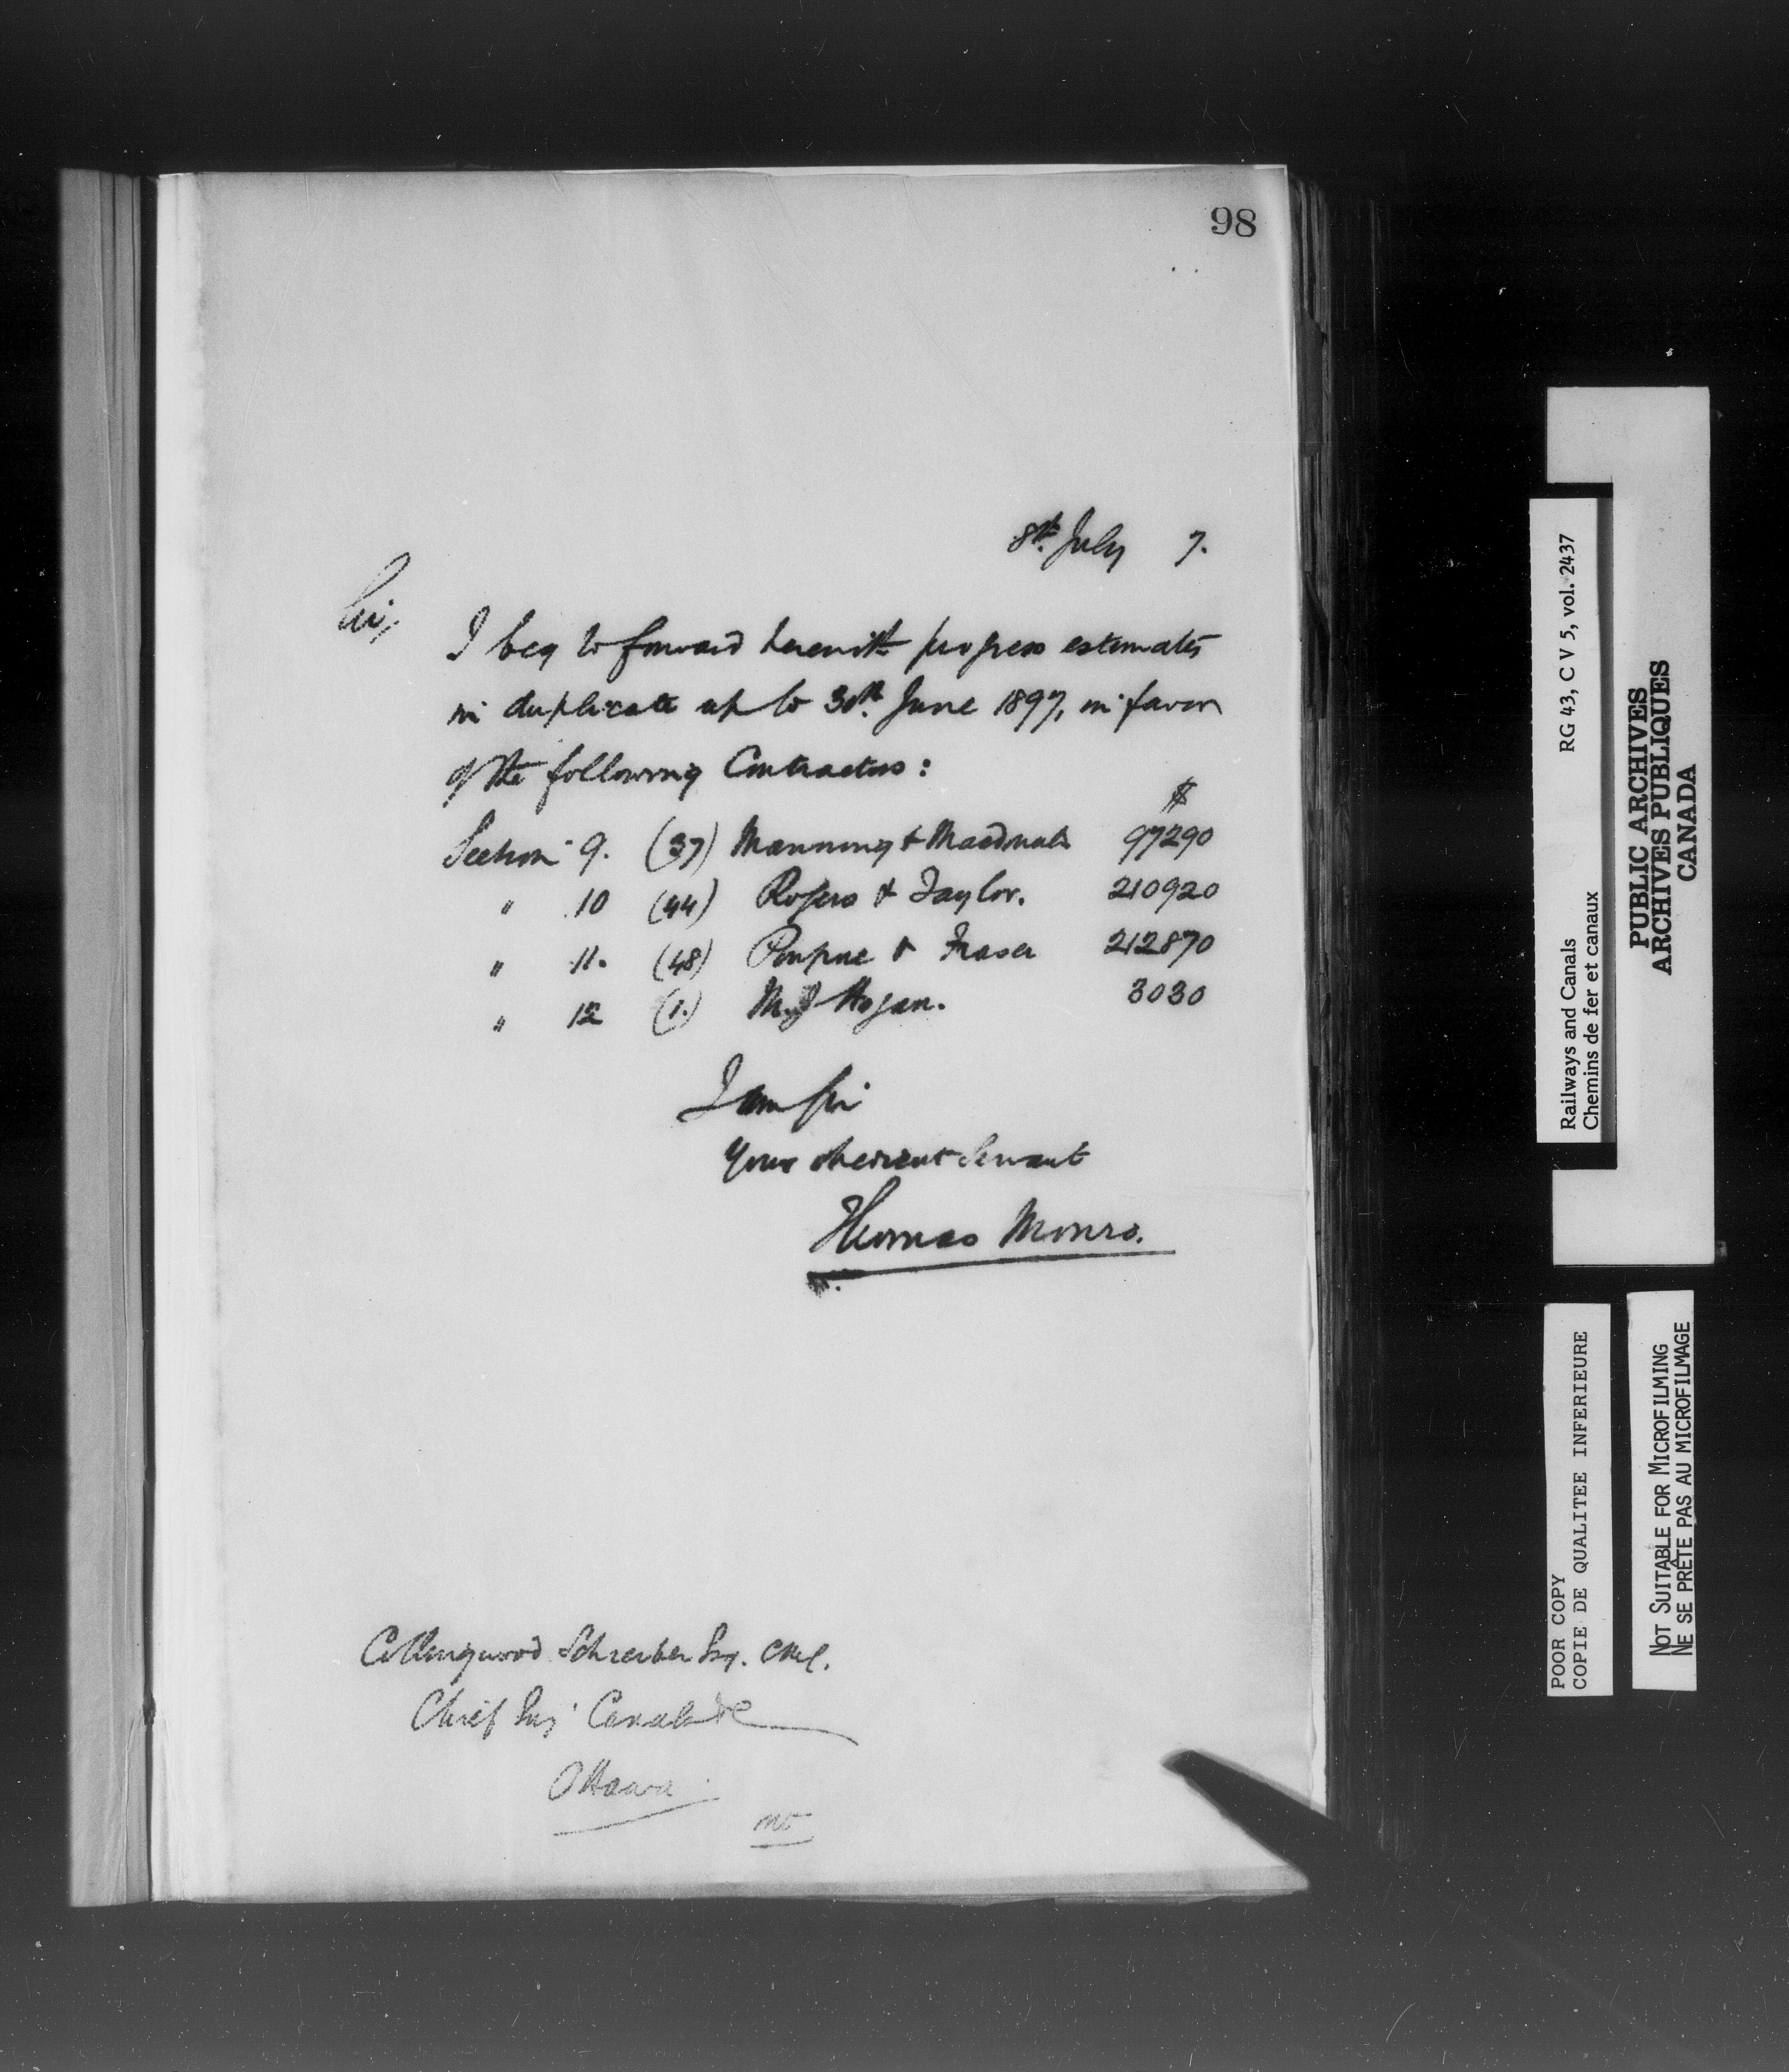 98
8th. July 7.
Sir,
I beg to forward herewith progress estimates
in duplicate up to 30th. June 1897, in favor
of the following Contractors:
$
Section 9. (37) Manning & Macdonald 97290
" 10 (44) Rogers & Taylor. 210920
" 11. (48) Poupore & Fraser 212870
" 12 (1.) M.J Hogan. 3030
I am Sir
Your obedient Servant
Thomas Monro.
Collingwood Schreiber Esq. CMG.
Chief Eng. Canals &c
Ottawa
Railways and Canals RG 43, C V 5, vol. 2437
Chemins de fer et canaux
PUBLIC ARCHIVES
ARCHIVES PUBLIQUES
CANADA
POOR COPY
COPIE DE QUALITEE INFERIEURE
NOT SUITABLE FOR MICROFILMING
NE SE PRÊTE PAS AU MICROFILMAGE